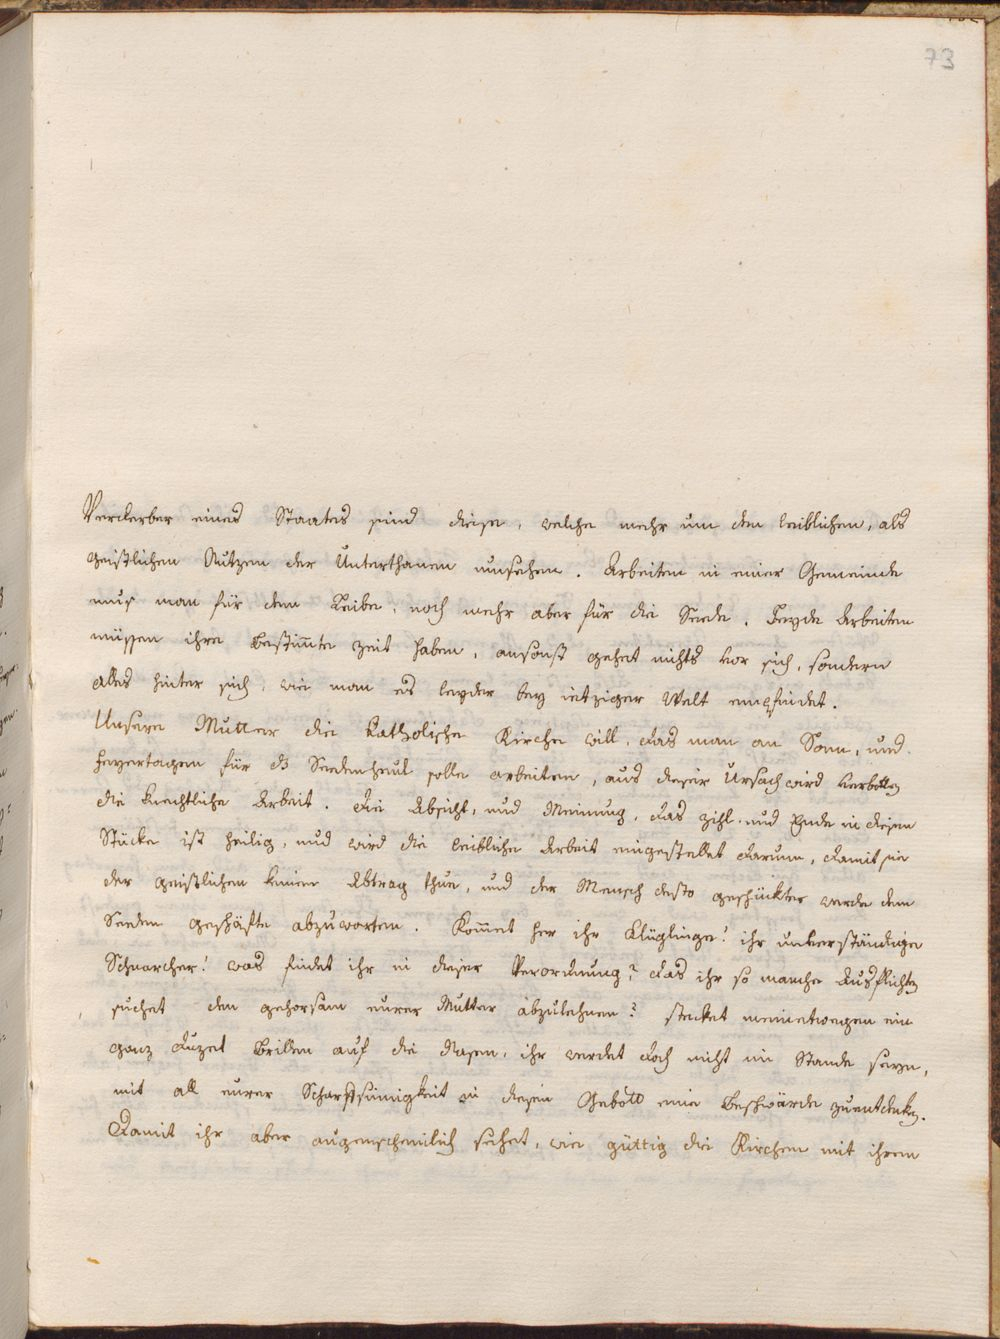 73
Verderber eines Staates sind diese, welche mehr um den leiblichen, als
geistlichen Nutzen der Unterthanen umsehen. Arbeiten in einer Gemeinde
mus man für dem Leibe, noch mehr aber für die Seele. Beyde Arbeiten
müssen ihre bestim̅te Zeit haben, ansonst gehet nichts vor sich, sondern
alles hinter sich, wie man es leyder bey ietziger Welt empfindet.
Unsere Mutter die Katholische Kirche will, das man an Sonn, und
Feyertagen für d3 Seelenheul solle arbeiten, aus dieser Ursach wird verbotten
die knechtliche Arbeit. Die Absicht, und Meinung, das Zihl und Ende in diesem
Stücke ist heilig, und wird die leibliche Arbeit eingestellet darum, damit sie
der geistlichen keinen Abtrag thue, und der Mensch desto geschückter werde dem
Seelen geschäfte abzuwarten. Kom̅et her ihr Klüglinge! ihr unverständige
Schnarcher! was findet ihr in dieser Verordnung? das ihr so manche Ausflichten
suchet den gehorsam eurer Mutter abzulehnen? stecket meinetwegen ein
ganz Duzet Brillen auf die Nasen, ihr werdet doch nicht im Stande seyn,
mit all eurer Scharfsinnigkeit in diesen Gebott eine Beschwärde zuentdecken.
Damit ihr aber augenscheinlich sehet, wie güttig die Kirchen mit ihrem